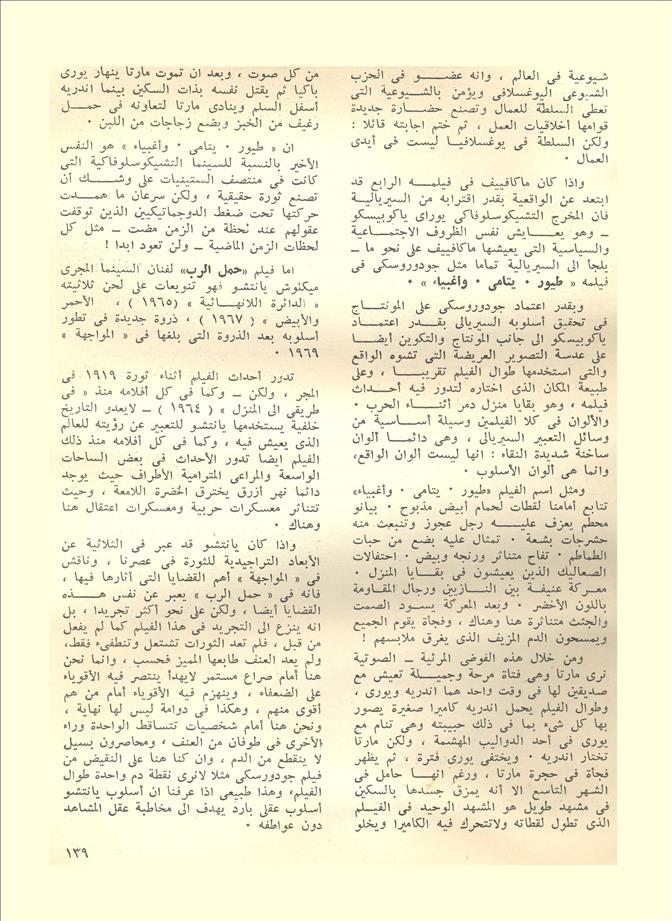 شيوعية فى العالم ، وانه عضو فى الحزب
الشيوعى اليوغسلافى ويؤمن بالشيوعية التى
تعطى السلطة للعمال وتصنع حضارة جديدة
قوامها أخلاقيات العمل ، ثم ختم اجابته قائلا :
ولكن السلطة فى يوغسلافيا ليست فى أيدى
العمال ٠
واذا كان ماكافييف فى فيلمه الرابع قد
ابتعد عن الواقعية بقدر اقترابه من السيريالية
فان المخرج التشيكوسلوفاكى يوراى ياكوبيسكو
ـ وهو يعايش نفس الظروف الاجتماعية
والسياسية التى يعيشها ماكافييف على نحو ما ـ
يلجأ الى السيريالية تماما مثل جودوروسكى فى
فيلمه « طيور ٠ يتامى ٠ وأغبياء » ٠
وبقدر اعتماد جودوروسكى على المونتاج
فى تحقيق أسلوبه السيريالى بقدر اعتماد
ياكوبيسكو الى جانب المونتاج والتكوين أيضا
على عدسة التصوير العريضة التى تشوه الواقع
والتى استخدمها طوال الفيلم تقريبا ، وعلى
طبيعة المكان الذى اختاره لتدور فيه أحداث
فيلمه ، وهو بقايا منزل دمر أثناء الحرب ٠
والألوان فى كلا الفيلمين وسيلة أساسية من
وسائل التعبير السيريالى ، وهى دائما ألوان
ساخنة شديدة النقاء : انها ليست ألوان الواقع،
وانما هى ألوان الأسلوب ٠
ومثل اسم الفيلم «طيور ٠ يتامى ٠ وأغبياء»
تتابع أمامنا لقطات لحمام أبيض مذبوح ٠ بيانو
محطم يعزف عليه رجل عجوز وتنبعث منه
حشرجات بشعة ٠ تمثال عليه بضع من حبات
الطماطم ٠ تفاح متناثر ورنجه وبيض ٠ احتفالات
الصعاليك الذين يعيشون فى بقايا المنزل ٠
معركة عنيفة بين النازيين ورجال المقاومة
باللون الأخضر ٠ وبعد المعركة يسود الصمت
والجثث متناثرة هنا وهناك ، وفجأة يقوم الجميع
ويمسحون الدم المزيف الذى يغرق ملابسهم !
ومن خلال هذه الفوضى المرئية ـ الصوتية
نرى مارتا وهى فتاة مرحة وجميلة تعيش مع
صديقين لها فى وقت واحد هما اندريه ويورى ،
وطوال الفيلم يحمل اندريه كاميرا صغيرة يصور
بها كل شىء بما فى ذلك حبيبته وهى تنام مع
يورى فى أحد الدواليب المهشمة ، ولكن مارتا
تختار اندريه ٠ ويختفى يورى فترة ، ثم يظهر
فجأة فى حجرة مارتا ، ورغم انها حامل فى
الشهر التاسع الا أنه يمزق جسدها بالسكين
فى مشهد طويل هو المشهد الوحيد فى الفيلم
الذى تطول لقطاته ولاتتحرك فيه الكاميرا ويخلو
من كل صوت ، وبعد ان تموت مارتا ينهار يورى
باكيا ثم يقتل نفسه بذات السكين بينما اندريه
أسفل السلم وينادى مارتا لتعاونه فى حمل
رغيف من الخبز وبضع زجاجات من اللبن ٠
ان « طيور ٠ يتامى ٠ وأغبياء » هو النفس
الأخير بالنسبة للسينما التشيكوسلوفاكية التى
كانت فى منتصف الستينيات على وشك أن
تصنع ثورة حقيقية ، ولكن سرعان ما همدت
حركتها تحت ضغط الدوجماتيكيين الذين توقفت
عقولهم عند لحظة من الزمن مضت ـ مثل كل
لحظات الزمن الماضية ـ ولن تعود ابدا !
اما فيلم «حمل الرب» لفنان السينما المجرى
ميكلوش يانتشو فهو تنويعات على لحن ثلاثيته
« الدائرة اللانهائية » (١٩٦٥) ، « الأحمر
والأبيض » ( ١٩٦٧ ) ، ذروة جديدة فى تطور
أسلوبه بعد الذروة التى بلغها فى « المواجهة »
١٩٦٩ ٠
تدور أحداث الفيلم أثناء ثورة ١٩١٩ فى
المجر ، ولكن ـ وكما فى كل أفلامه منذ « فى
طريقى الى المنزل » ( ١٩٦٤ ) ـ لايعدو التاريخ
خلفية يستخدمها يانتشو للتعبير عن رؤيته للعالم
الذى يعيش فيه ، وكما فى كل أفلامه منذ ذلك
الفيلم ايضا تدور الأحداث فى بعض الساحات
الواسعة والمراعى المترامية الأطراف حيث يوجد
دائما نهر أزرق يخترق الخضرة اللامعة ، وحيث
تتناثر معسكرات حربية ومعسكرات اعتقال هنا
وهناك ٠
واذا كان يانتشو قد عبر فى الثلاثية عن
الأبعاد التراجيدية للثورة فى عصرنا ، وناقش
فى « المواجهة » أهم القضايا التى أثارها فيها ،
فانه فى « حمل الرب » يعبر عن نفس هذه
القضايا أيضا ، ولكن على نحو أكثر تجريدا ، بل
انه ينزع الى التجريد فى هذا الفيلم كما لم يفعل
من قبل ، فلم تعد الثورات تشتعل وتنطفىء فقط،
ولم يعد العنف طابعها المميز فحسب ، وانما نحن
هنا أمام صراع مستمر لايهدأ ينتصر فيه الأقوياء
على الضعفاء ، وينهزم فيه الأقوياء أمام من هم
أقوى منهم ، وهكذا فى دوامة ليس لها نهاية ،
ونحن هنا أمام شخصيات تتساقط الواحدة وراء
الأخرى فى طوفان من العنف ، ومحاصرون بسيل
لا ينقطع من الدم ، وان كنا هنا على النقيض من
فيلم جودورسكى مثلا لانرى نقطة دم واحدة طوال
الفيلم، وهذا طبيعى اذا عرفنا ان أسلوب يانتشو
أسلوب عقلى بارد يهدف الى مخاطبة عقل المشاهد
دون عواطفه ٠
١٣٩